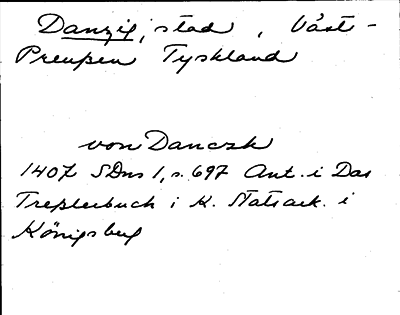 Danzig, stad, Väst-
Preussen Tyskland
von Danczk
1407 SDns 1, s. 697 Ant. i Das
Treslerbuch i K. Statsark. i
Königsberg